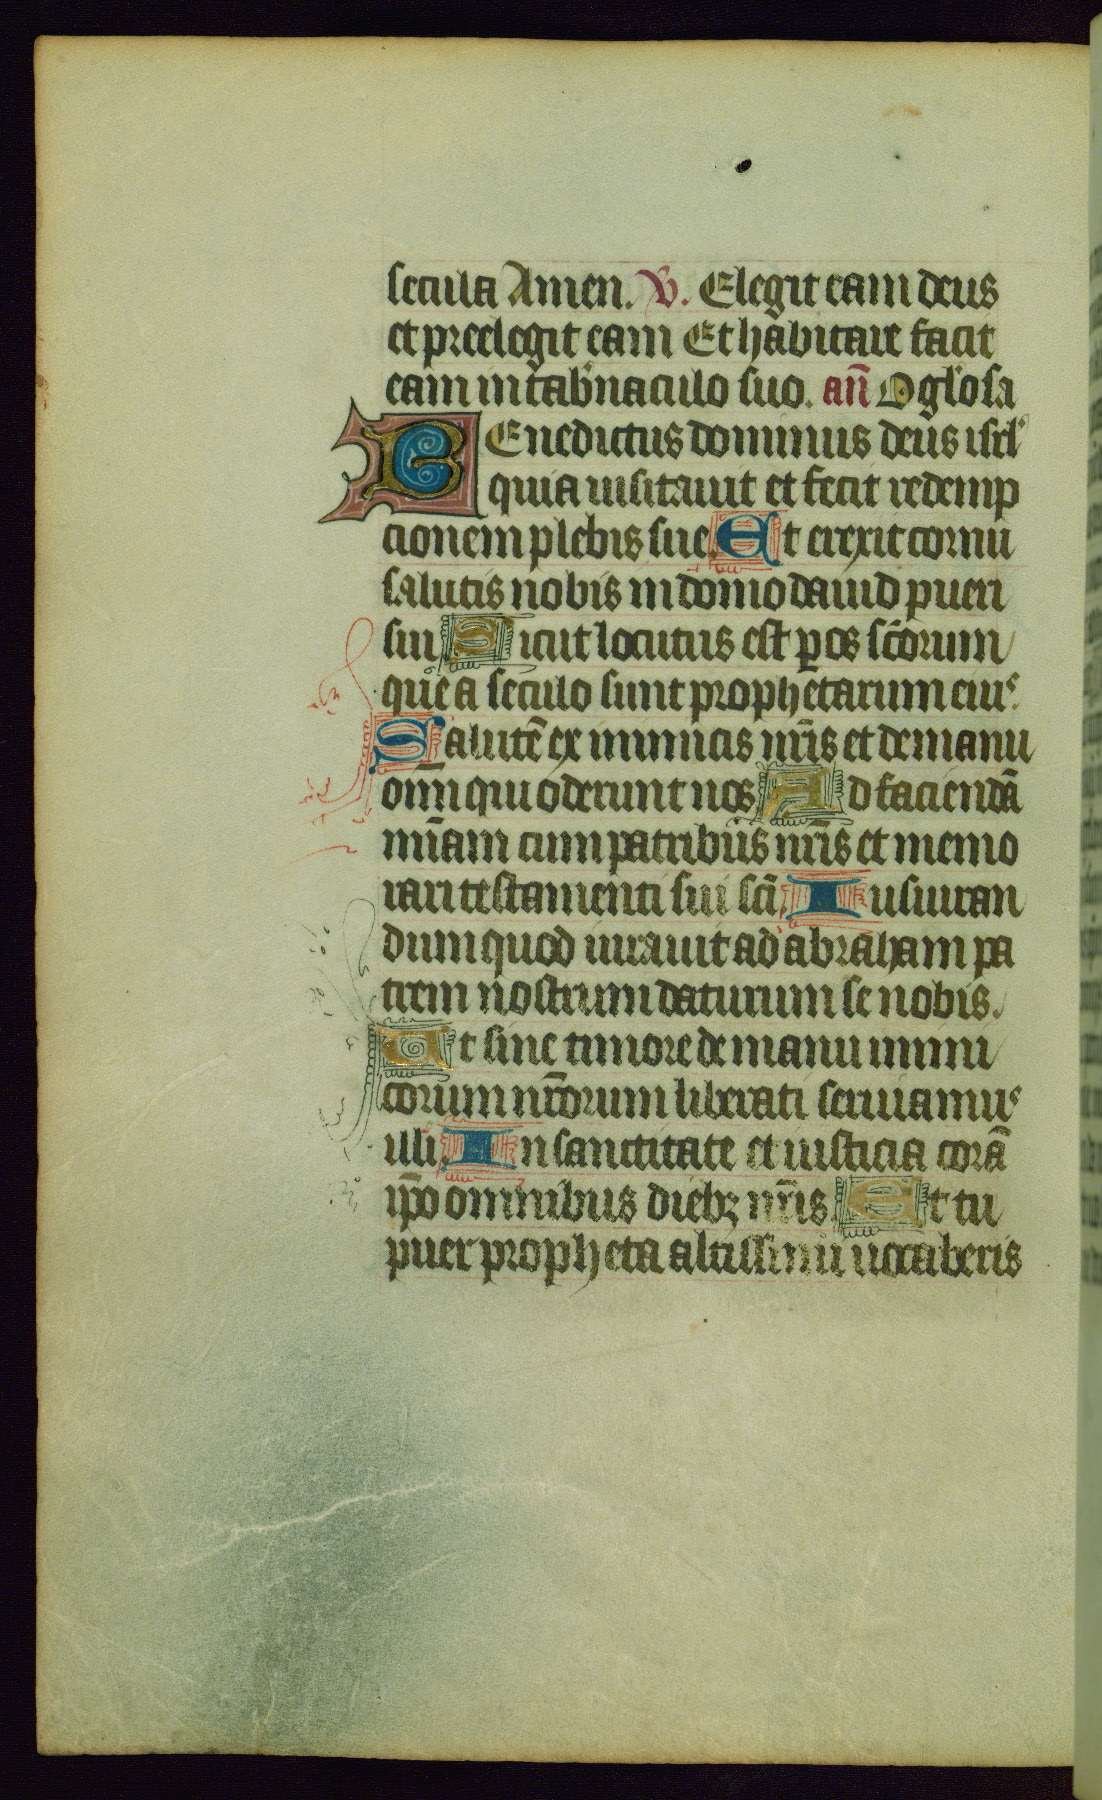 secula Amen. V. Elegit eam deus
et preelegit eam Et habitare facit
eam in tab'naculo suo. an̄ O gl'osa
BEnedictus dominus deus isrl'
quia uisitauit et fecit redemp
cionem plebis sue. Et erexit cornu
salutis nobis in domo dauid pueri
sui Sicut locutus est ꝑ os sc̄orum
que a seculo sunt prophetarum eiusꝰ
Salutē ex inimicis nr̄is et de manu
oīm qui oderunt nos Ad faciendā
mīam cum patribus nr̄is et memo
rari testamenti sui sc̄i. Iusiuran
dum quod iurauit ad abraham pa
trem nostrum daturum se nobis.
Ut sine timore de manu inimi
corum nr̄orum liberati seruiamuꝰ
illi. In sanctitate et iusticia corā
ip̄o omnibus diebꝫ nr̄is. Et tu
puer propheta altissimi uocaberis